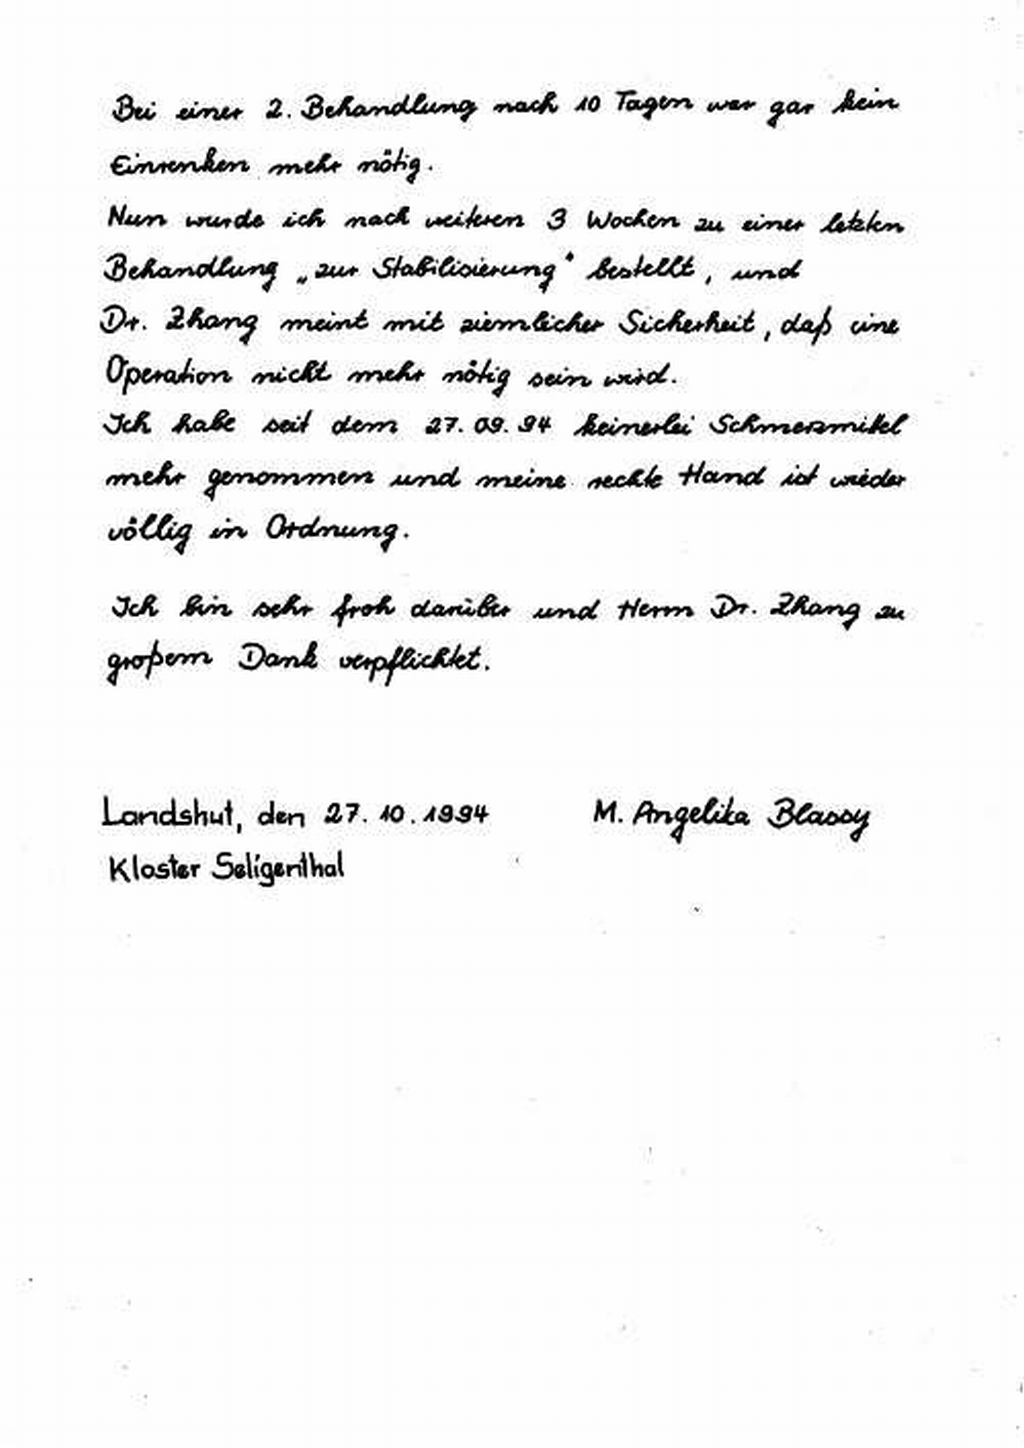 Bei einer 2. Behandlung nach 10 Tagen war gar kein
Einrenken mehr nötig.
Nun wurde ich nach weiteren 3 Wochen zu einer letzten
Behandlung „zur Stabilisierung" bestellt, und
Dr. Zhang meint mit ziemlicher Sicherheit, daß eine
Operation nicht mehr nötig sein wird.
Ich habe seit dem 27.09.94 keinerlei Schmerzmittel
mehr genommen und meine rechte Hand ist wieder
völlig in Ordnung.
Ich bin sehr froh darüber und Herrn Dr. Zhang zu
großem Dank verpflichtet.
Landshut, den 27.10.1994 M. Angelika Blassy
Kloster Seligenthal